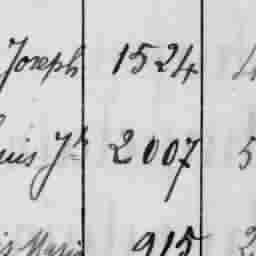 Joseph 1524 4
uis Jh 2007 5
is Marie 915 2